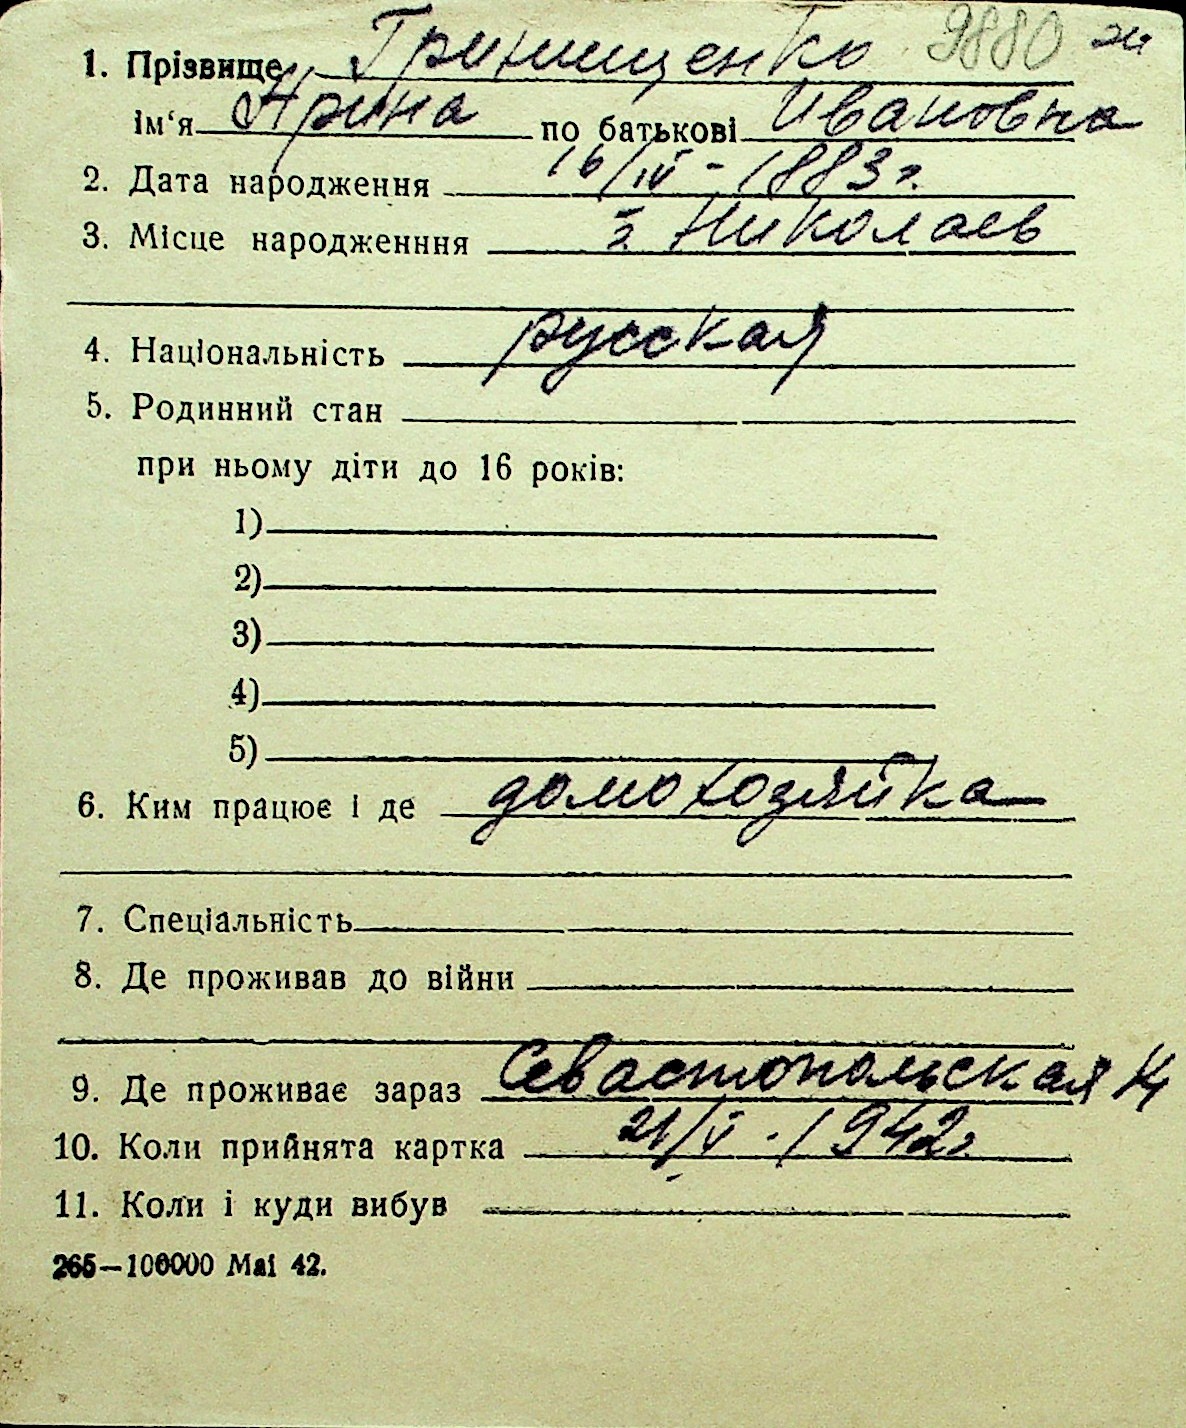 1. Прізвище Гринищенко 9880
ім‘я Арина по батькові Ивановна
2. Дата народження 16/IV - 1883 г.
3. Місце народженння г. Николаев
4. Національність русская
5. Родинний стан
при ньому діти до 16 років:
1)
2)
3)
4)
5)
6. Ким працює і де домохозяйка
7. Спеціальність
8. Де проживав до війни
9. Де проживає зараз Севастопольская
10. Коли прийнята картка 21/V - 1942 г.
11. Коли і куди вибув
265—100000 Mai 42.